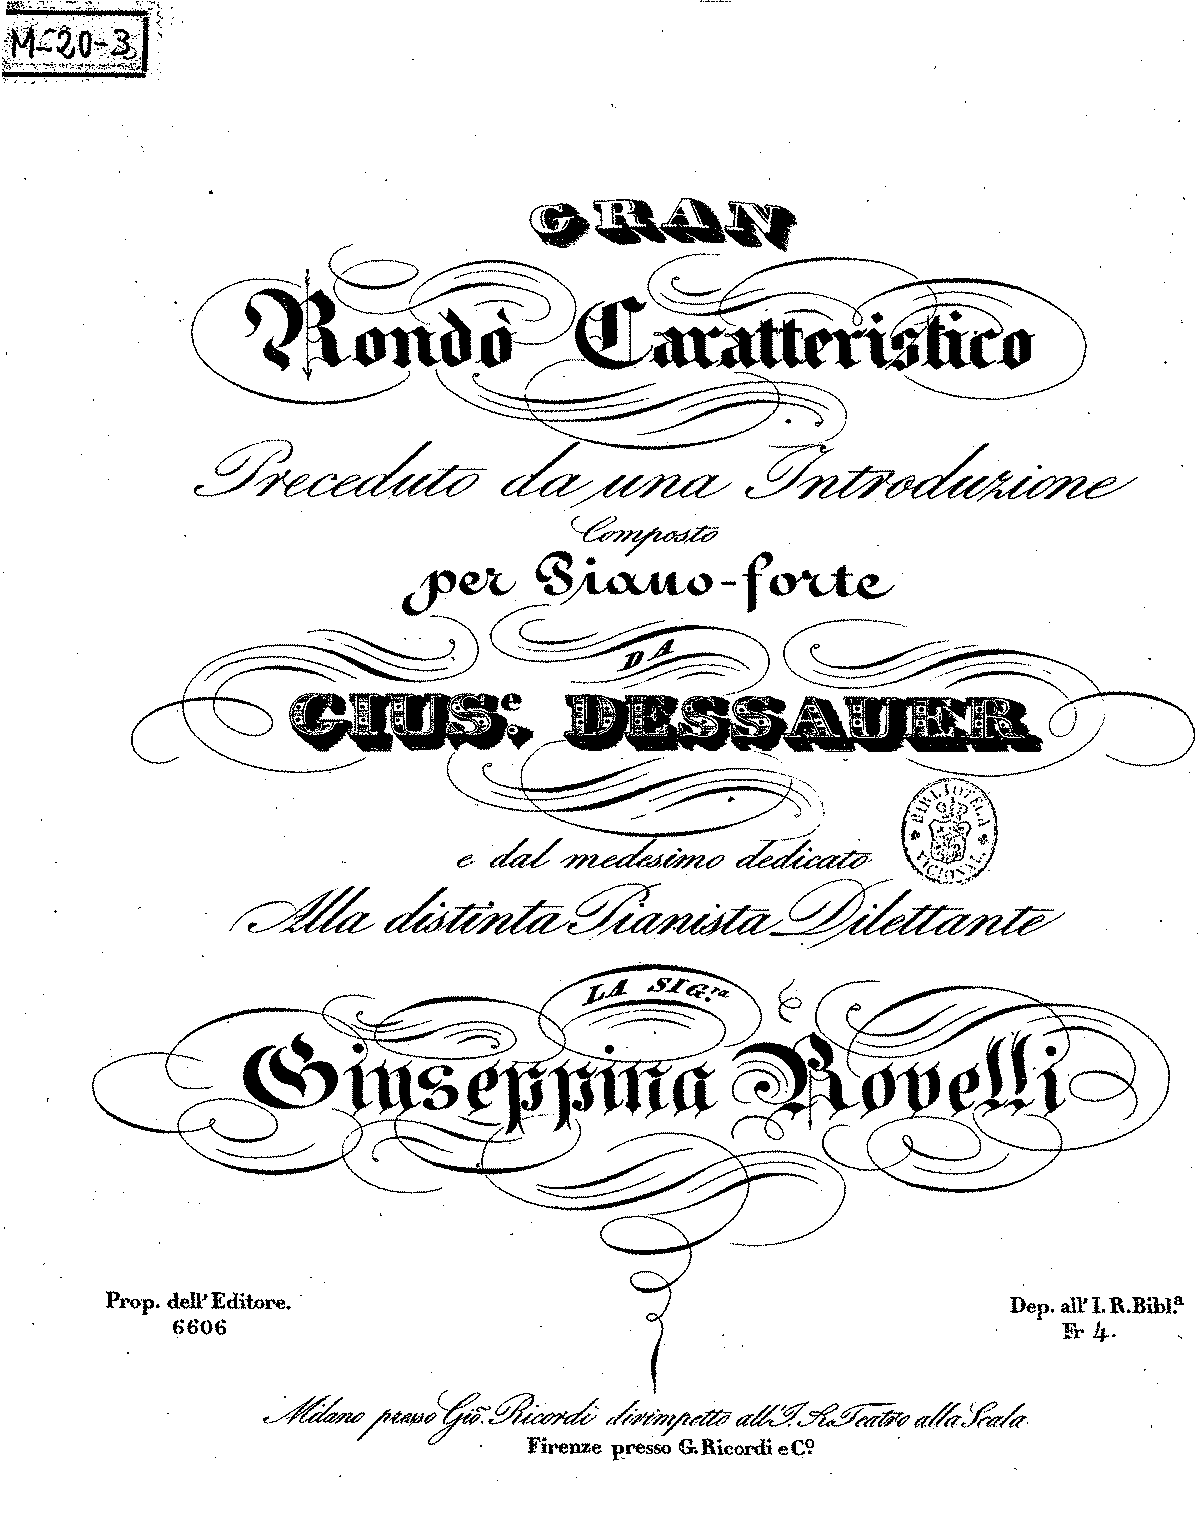 M-20-3
GRAN
Rondò Caratteristico
Preceduto da una Introduzione
Composto
per Piano-forte
DA
GIUS.e DESSAUER
BIBLIOTECA NACIONAL
e dal medesimo dedicato
Alla distinta Pianista Dilettante
LA SIG.ra
Giuseppina Rovelli
Prop. dell' Editore.
6606
Dep. all' I. R. Bibl.a
Fr 4.
Milano presso Gio. Ricordi dirimpetto all' I. R. Teatro alla Scala
Firenze presso G. Ricordi e Co